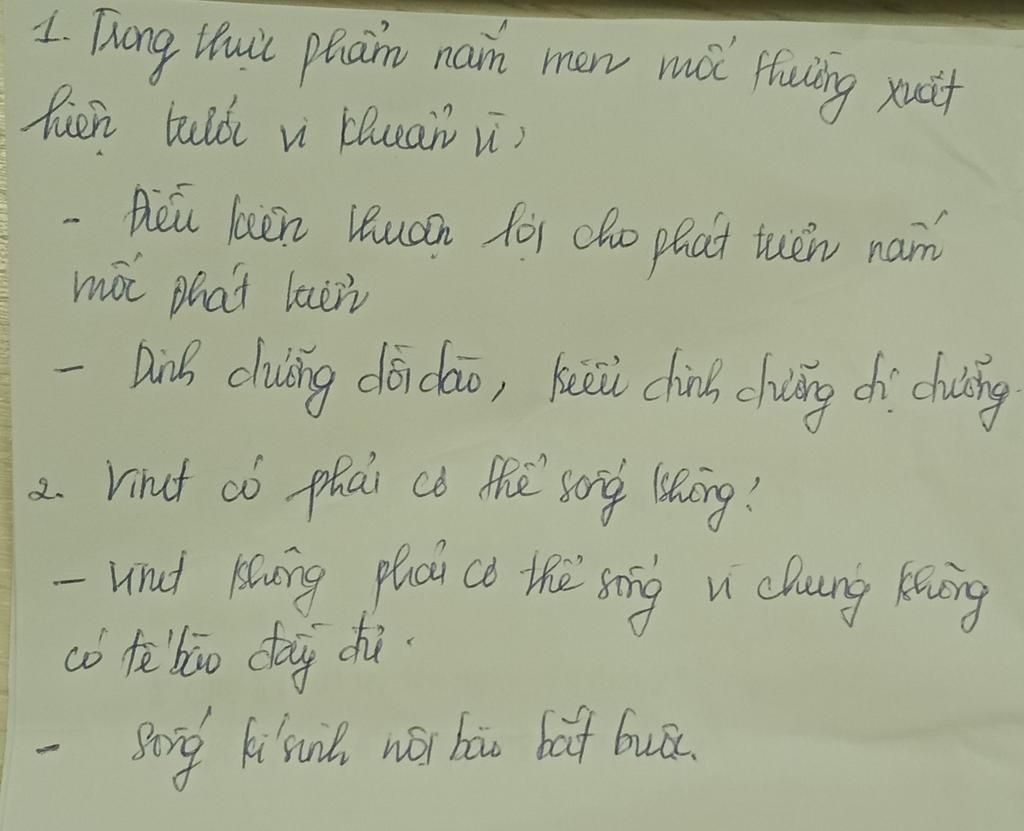 1. Trong thực phẩm nấm men mốc thường xuất
hiện trước vi khuẩn vì,
- Điều kiện thuận lợi cho phát triển nấm
mốc phát triển
- Dinh dưỡng dồi dào, kiểu dinh dưỡng dị dưỡng.
2. Virut có phải cơ thể sống không?
- Virut không phải cơ thể sống vì chúng không
có tế bào đầy đủ.
- Sống kí sinh nội bào bắt buộc.